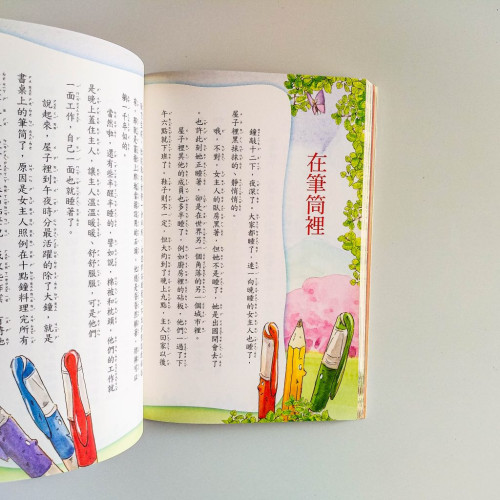 在筆筒裡
鐘敲十二下,夜深了,大家都睡了,連一向晚睡的女主人也睡了,
屋子裡黑抹抹的、靜悄悄的。
哦,不對,女主人的臥房黑著,但她不是睡了,她是出國開會去了
,也許此刻她正睡著,卻是在世界另一個角落的另一個城市裡。
屋子裡其他的成員也多半睡了,例如廚房裡的砧板,他們一過了下
午六點就下班了,鞋子則不一定,但大約到了晚上九點,主人回家以後
躺一千年似的。
當然啦,還有些半醒半睡的,譬如說,棉被和枕頭,他們的工作就
是晚上蓋住主人,讓主人溫溫暖暖、舒舒服服,可是他們
一面工作,自己一面也就睡著了。
說起來,屋子裡到午夜時分最活躍的除了大鐘,就是
書桌上的筆筒了,原因是女主人照例在十點鐘料理完所有